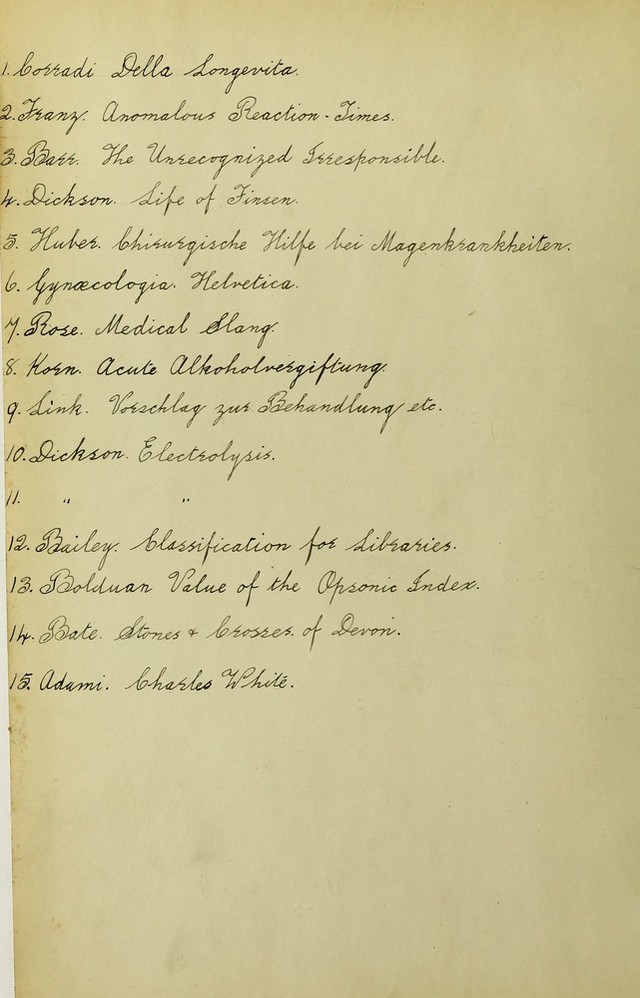 1. Corradi Della Longevita.
2. Franz. Anomalous Reaction-Times.
3. Barr. The Unrecognized Irresponsible.
4. Dickson. Life of Finsen.
5. Huber. Chirurgische Hilfe bei Magenkrankheiten.
6. Gynæcologia. Helvetica.
7. Rose. Medical Slang.
8. Korn. Acute Alkoholvergiftung.
9. Link. Vorschlag zur Behandlung etc.
10. Dickson. Electrolysis.
11. " "
12. Bailey. Classification for Libraries.
13. Bolduan Value of the Opsonic Index.
14. Bate. Stones & Crosses of Devon.
15. Adami. Charles White.